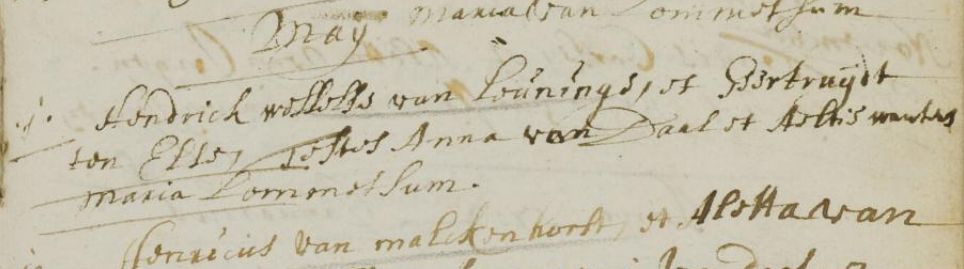 Maria van Lommersum
May
1. Hendrick wessels van Leunings, et Geertruijdt
ten Elsen, Testes Anna van Daal et Aeltie wauters
Maria Lommersum.
Henricus van malckenhorst, et Aletta van